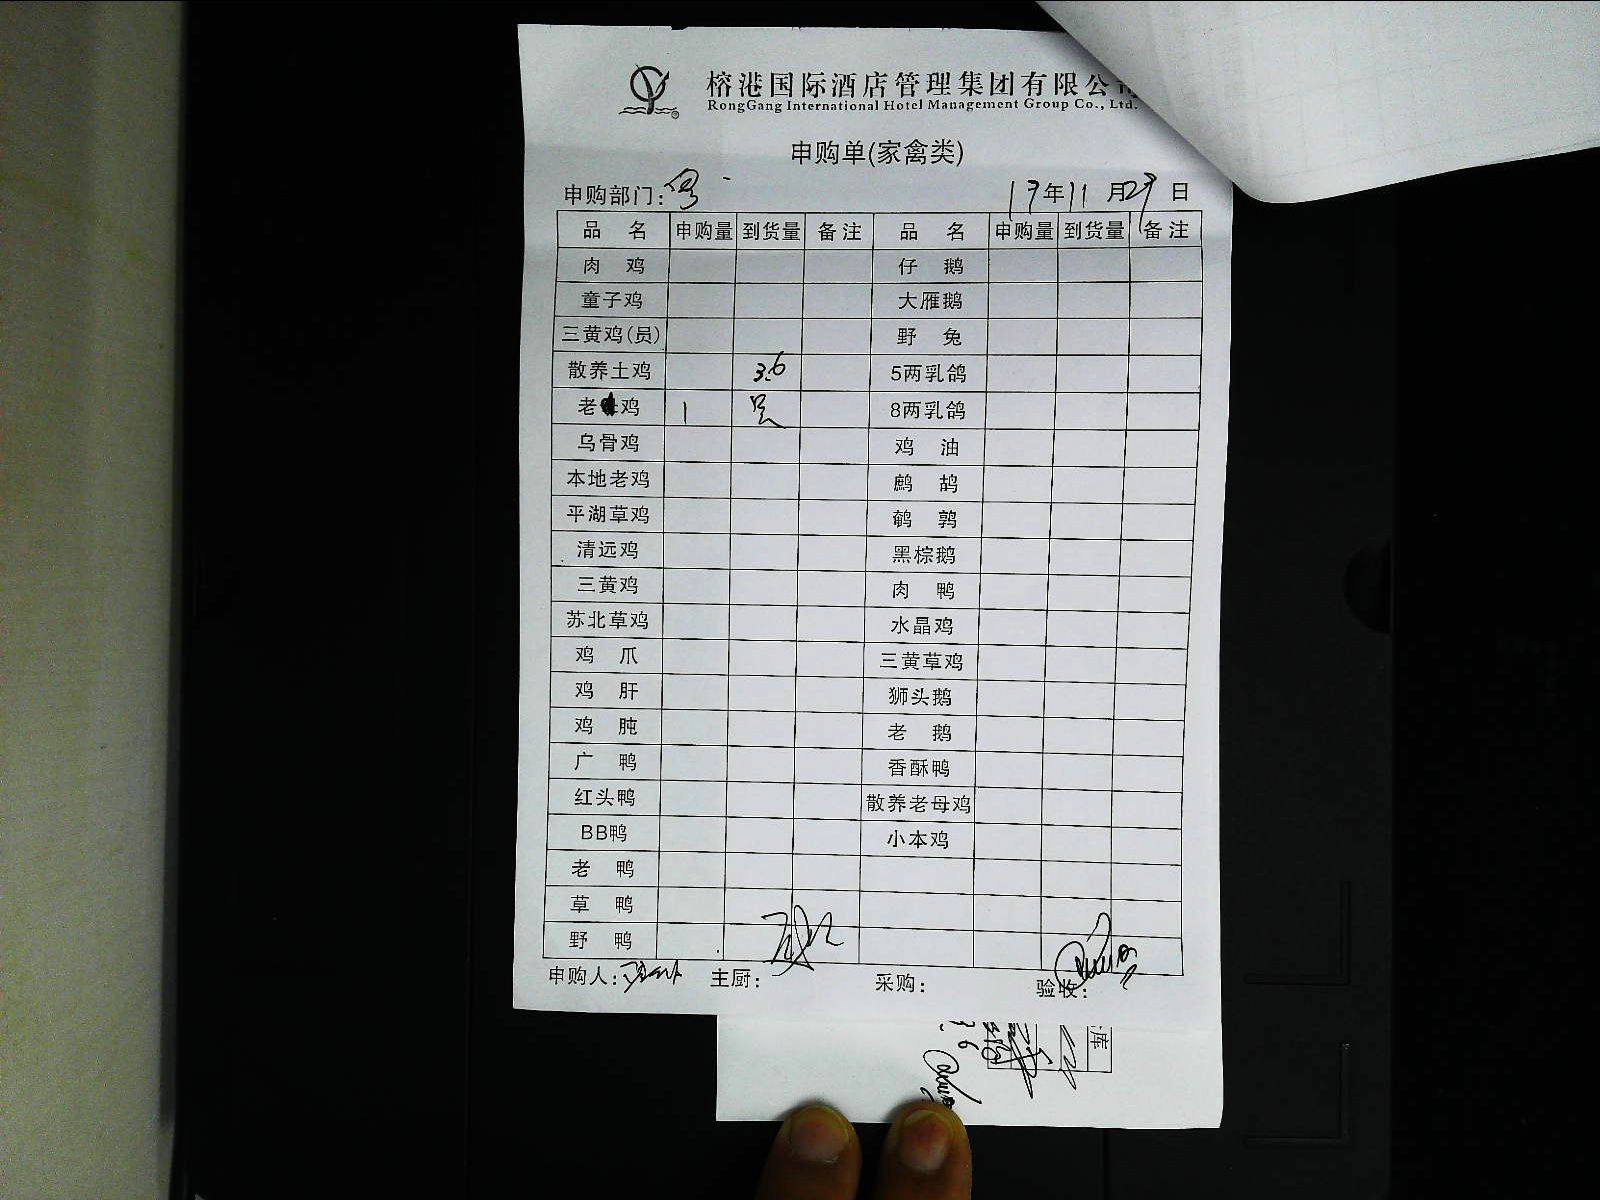 榕港国际酒店管理集团有限公司
RongGang International Hotel Management Group Co., Ltd.
申购单(家禽类)
申购部门: 17年11月29日
品名 申购量 到货量 备注 品名 申购量 到货量 备注
肉鸡 仔鹅
童子鸡 大雁鹅
三黄鸡(员) 野兔
散养土鸡 3.6 5两乳鸽
老鸡 1 8两乳鸽
乌骨鸡 鸡油
本地老鸡 鹧鸪
平湖草鸡 鹌鹑
清远鸡 黑棕鹅
三黄鸡 肉鸭
苏北草鸡 水晶鸡
鸡爪 三黄草鸡
鸡肝 狮头鹅
鸡肫 老鹅
广鸭 香酥鸭
红头鸭 散养老母鸡
BB鸭 小本鸡
老鸭
草鸭
野鸭
申购人: 主厨: 采购: 验收:
库
3.6